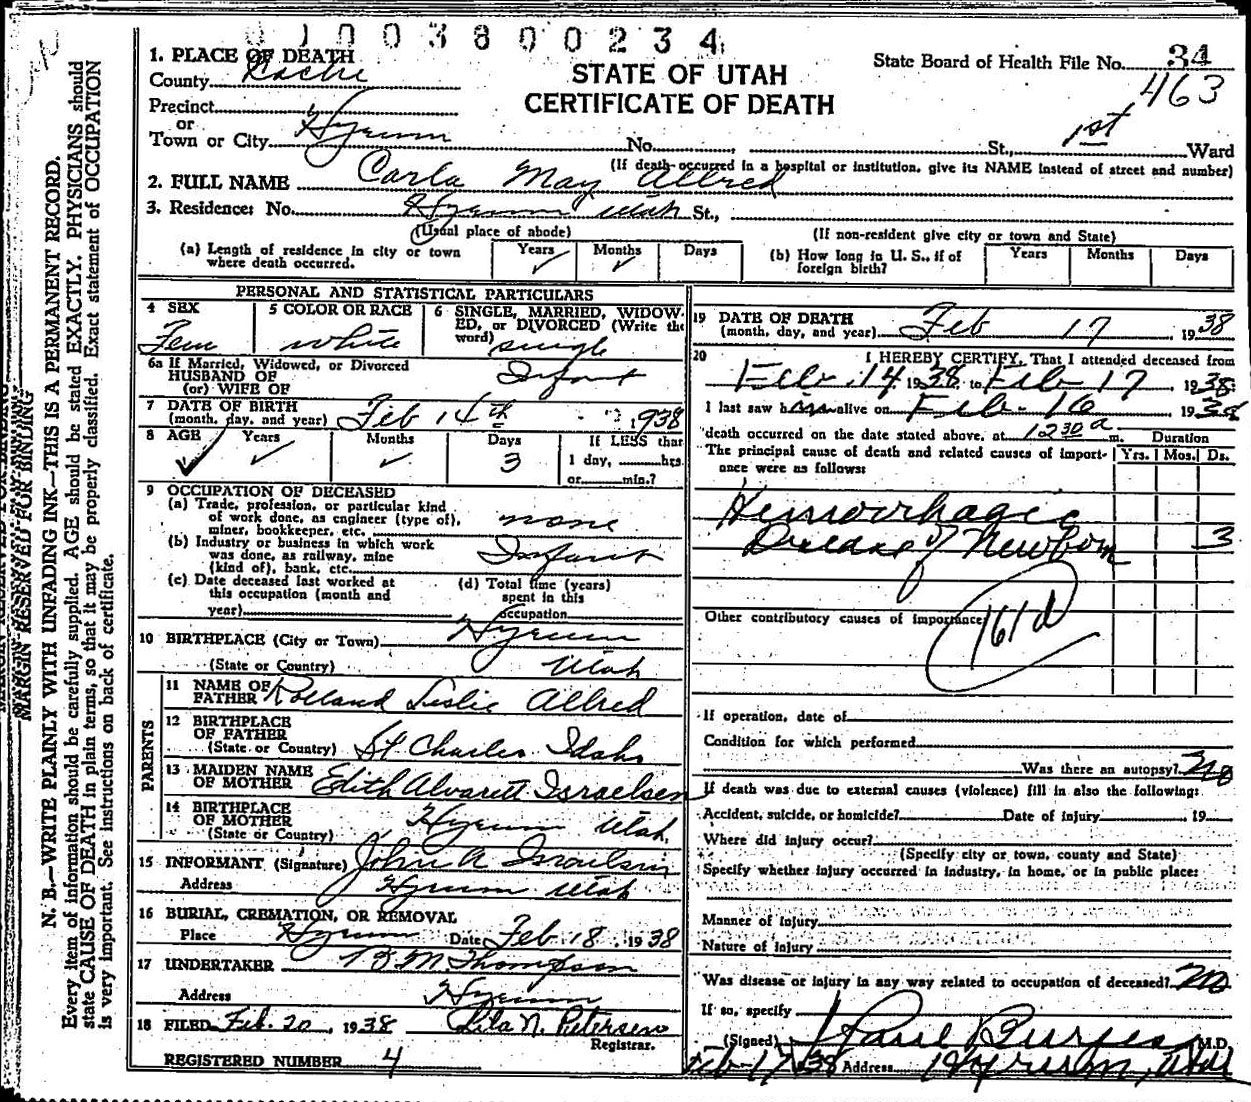 01003800234
1. PLACE OF DEATH
County Cache
STATE OF UTAH
CERTIFICATE OF DEATH
State Board of Health File No. 34
463
Precinct
or
Town or City Hyrum No. St., 1st Ward
(If death occurred in a hospital or institution, give its NAME instead of street and number)
2. FULL NAME Carla May Allred
3. Residence: No. Hyrum Utah St.,
(Usual place of abode) (If non-resident give city or town and State)
(a) Length of residence in city or town where death occurred. Years ✓ Months ✓ Days
(b) How long in U. S., if of foreign birth? Years Months Days
PERSONAL AND STATISTICAL PARTICULARS
4 SEX Fem
5 COLOR OR RACE white
6 SINGLE, MARRIED, WIDOWED, or DIVORCED (Write the word) single
6a If Married, Widowed, or Divorced
HUSBAND OF
(or) WIFE OF Infant
7 DATE OF BIRTH
(month, day, and year) Feb 14th 1938
8 AGE ✓ Years ✓ Months ✓ Days 3
If LESS than
1 day, hrs.
or min.?
9 OCCUPATION OF DECEASED
(a) Trade, profession, or particular kind
of work done, as engineer (type of),
miner, bookkeeper, etc. none
(b) Industry or business in which work
was done, as railway, mine
(kind of), bank, etc. Infant
(c) Date deceased last worked at
this occupation (month and
year)
(d) Total time (years)
spent in this
occupation
10 BIRTHPLACE (City or Town) Hyrum
(State or Country) Utah
PARENTS
11 NAME OF
FATHER Rolland Leslie Allred
12 BIRTHPLACE
OF FATHER
(State or Country) St. Charles Idaho
13 MAIDEN NAME
OF MOTHER Edith Alvarett Israelsen
14 BIRTHPLACE
OF MOTHER
(State or Country) Hyrum Utah
15 INFORMANT (Signature) John A Israelsen
Address Hyrum Utah
16 BURIAL, CREMATION, OR REMOVAL
Place Hyrum Date Feb 18, 1938
17 UNDERTAKER B M Thompson
Address Hyrum
18 FILED Feb. 20, 1938 Rita N. Petersen
Registrar.
REGISTERED NUMBER 4
19 DATE OF DEATH
(month, day, and year) Feb 17 1938
20 I HEREBY CERTIFY, That I attended deceased from
Feb. 14 1938 to Feb 17 1938
I last saw h alive on Feb. 16 1938
death occurred on the date stated above, at 12 30 a m.
The principal cause of death and related causes of importance were as follows:
Duration
Yrs. Mos. Ds.
Hemorrhagic
Disease of Newborn 3
Other contributory causes of importance
161d
If operation, date of
Condition for which performed
Was there an autopsy? No
If death was due to external causes (violence) fill in also the following:
Accident, suicide, or homicide? Date of injury 19
Where did injury occur?
(Specify city or town, county and State)
Specify whether injury occurred in industry, in home, or in public place:
Manner of Injury
Nature of Injury
Was disease or injury in any way related to occupation of deceased? No
If so, specify
(Signed) Paul Burgess M.D.
Feb-17 38 Address Hyrum, Utah
MARGIN RESERVED FOR BINDING
N. B.—WRITE PLAINLY WITH UNFADING INK—THIS IS A PERMANENT RECORD.
Every item of information should be carefully supplied. AGE should be stated EXACTLY. PHYSICIANS should
state CAUSE OF DEATH in plain terms, so that it may be properly classified. Exact statement of OCCUPATION
is very important. See instructions on back of certificate.